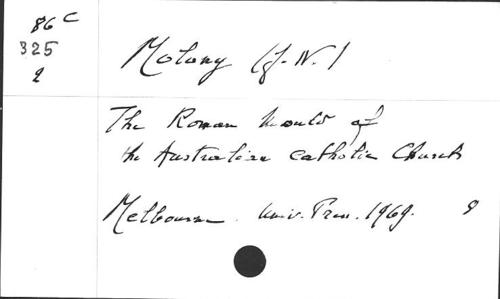 86 C
325
2
Molony (J. N.)
The Roman Mould of
the Australian Catholic Church
Melbourne. Univ. Press. 1969. 8